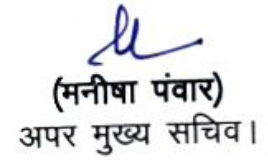 (मनीषा पंवार)
अपर मुख्य सचिव।